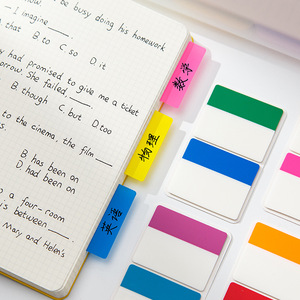 be busy doing his homework
— I imagine ____.
that B. to C. so D. it
had promised to give me a ticket
She failed, ____.
B. though C. but D. too
to the cinema. the film ____
B. has been on
D. had been on
a four-room
is between ____.
Mary and Helen's
数学
物理
英语